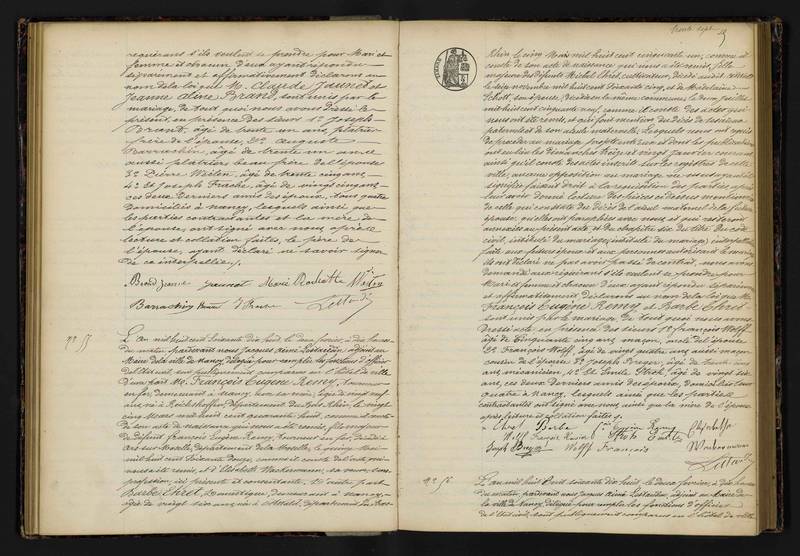 requérans s'ils veulent se prendre pour Mari et
femme et chacun d'eux ayant répondu
séparément et affirmativement déclarons au
nom de la loi que M. Claude Jaunet et
Jeanne Aline Briand, sont unis par le
mariage, de tout quoi nous avons dressé le
présent en présence des sieurs 1° Joseph
Briand, âgé de trente un ans, plâtrier
frère de l'épouse, 2° Auguste
âgé de trente un ans
aussi plâtrier beau frère de l'épouse
3° Pierre âgé de trente cinq ans,
4° et Joseph Frache, âgé de vingt cinq ans
ces deux derniers amis des époux, tous quatre
domiciliés à Nancy, lesquels ainsi que
les parties contractantes et la mère de
l'épouse, ont signé avec nous après
lecture et collation faites, le père de
l'épouse, ayant déclaré ne savoir signer
de ce interpellé.
N° 55
L'an mil huit cent soixante dix huit, le deux février, à dix heures
du matin, pardevant nous Jacques Aimé adjoint au
Maire de la ville de Nancy, délégué pour remplir les fonctions d'officier
de l'État civil, sont publiquement comparus en l'hôtel de ville
d'une part M. François Eugène Remy, tourneur
en fer, demeurant à Nancy, âgé de vingt neuf
ans, né à département du Bas Rhin, le vingt
cinq Mars mil huit cent quarante huit, comme il conste
de son acte de naissance qui nous a été remis, fils majeur
de défunt François Eugène Remy, tourneur en fer, décédé à
Ars sur Moselle, département de la Moselle, le quinze Mai
mil huit cent soixante douze, comme il conste de l'acte qui
nous a été remis, et d'Elisabeth sa veuve, sans
profession, ici présente et consentante, et d'autre part
Barbe Ehret, domestique, demeurant à Nancy,
âgée de vingt six ans, née à département du Bas-
trente sept
Rhin le cinq Mai mil huit cent cinquante un, comme il
conste de son acte de naissance qui nous a été remis, fille
majeure des défunts Michel Ehret, cultivateur, décédé audit
le sept novembre mil huit cent soixante cinq, et de Madelaine
Schott, son épouse, décédée en la même commune, le deux juillet
mil huit cent cinquante neuf, comme il conste des actes qui
nous ont été remis, et qui font mention du décès de ses aïeux
paternels et de son aïeule maternelle; Lesquels nous ont requis
de procéder au mariage projeté entr'eux et dont les publications
ont eu lieu les Dimanches treize et vingt Janvier dernier
ainsi qu'il conste des actes inscrits sur les registres de cette
ville, aucune opposition au mariage ne nous ayant été
signifiée faisant droit à la réquisition des parties après
leur avoir donné lecture des pièces ci dessus mentionnées
de celle qui constate du décès de l'aïeul maternel de la future
épouse, qu'elles ont paraphées avec nous, et qui resteront
annexées au présent acte, et du chapitre six du titre du code
civil, intitulé du mariage, interpellation
faite aux futurs époux et aux personnes autorisant le mariage
ils ont déclaré ne pas avoir passé de contrat, nous avons
demandé aux requérans s'ils veulent se prendre pour
Mari et femme et chacun d'eux ayant répondu séparément
et affirmativement déclarons au nom de la loi que M.
François Eugène Remy et Barbe Ehret
sont unis par le mariage de tout quoi nous avons
dressé acte, en présence des sieurs 1° François Wolff
âgé de Cinquante cinq ans, maçon, oncle de l'épouse
2° François Wolff, âgé de vingt quatre ans, aussi maçon
cousin de l'épouse 3° Joseph âgé de trente
ans, mécanicien, 4° âgé de vingt six
ans, ces deux derniers amis des époux, domiciliés tous
quatre à Nancy, lesquels ainsi que les parties
contractantes ont signé avec nous ainsi que la mère de l'époux
après lecture et collation faites.
N° 56
L'an mil huit cent soixante dix huit, le deux février, à dix heures
du matin, pardevant nous Jacques Aimé adjoint au Maire de
la ville de Nancy, délégué pour remplir les fonctions d'officier
de l'État civil, sont publiquement comparus en l'hôtel de ville